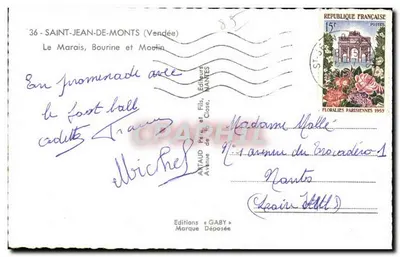 36 - SAINT-JEAN-DE-MONTS (Vendée)
Le Marais, Bourine et Moulin
85
RÉPUBLIQUE FRANÇAISE
15F
POSTES
FLORALIES PARISIENNES 1959
En promenade avec
le foot ball
cadets
Michel
ARTAUD Père et Fils, Editeurs
NANTES
Madame Mallé
N° 1 avenue du Trocadéro
Nantes
(Loire Atl)
Editions « GABY »
Marque Déposée